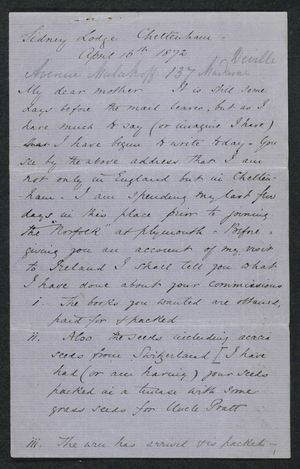 Sidney Lodge Cheltenham -
April 16th 1872
Avenue Malakoff 137
My dear mother It is still some
days before the mail leaves, but as I
have much to say (or imagine I have)
I have begun to write today - You
see by the above address that I am
not only in England but in Chelten-
ham - I am spending my last few
days in this place prior to joining
the "Norfolk" at Plymouth - Before -
giving you an account of my visit
to Ireland I shall tell you what
I have done about your commissions
i. The books you wanted are obtained,
paid for & packed
ii. Also the seeds including acacia
seeds from Switzerland [I have
had (or am having) your seeds
packed in a with some
grass seeds for Uncle Pratt
iii. The urn has arrived & is packed -